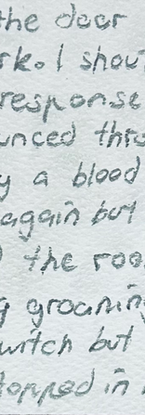 the door
rk. I shou
response
unced thro
y a blood
again but
the roo
g groaning
witch but
topped in